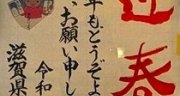 迎春
年もとうぞよ
お願い申し
令和
滋賀県